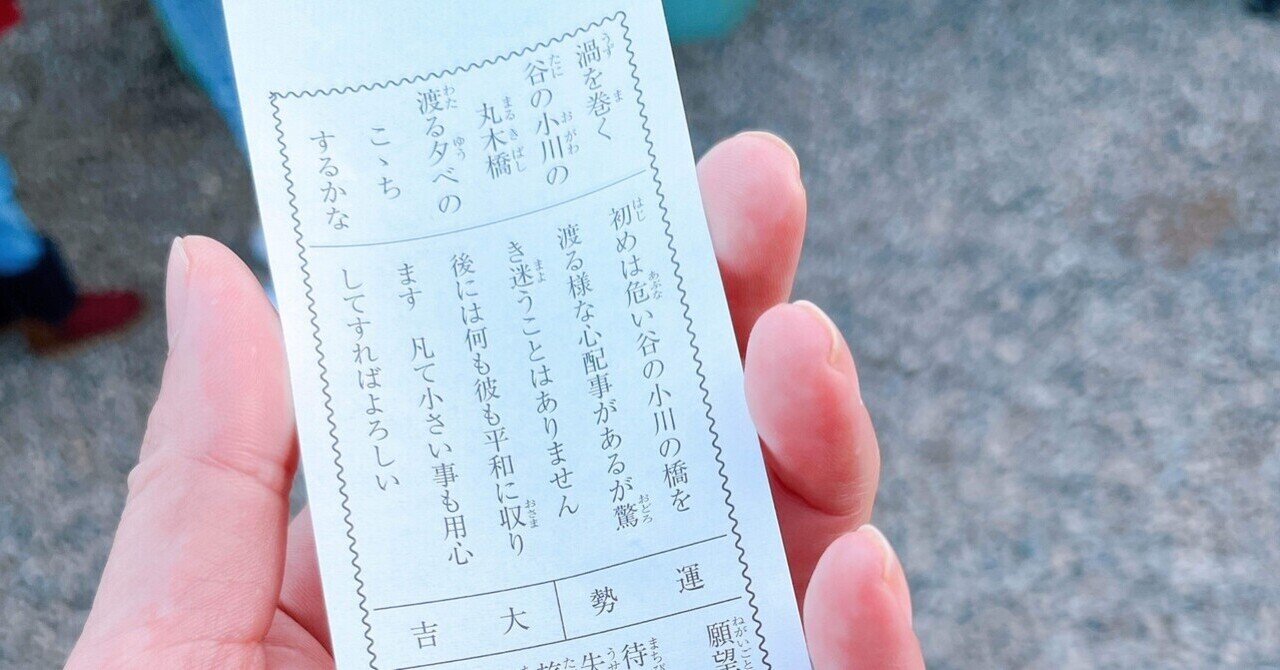 渦を巻く
谷の小川の
丸木橋
渡る夕べの
こゝち
するかな
初めは危い谷の小川の橋を
渡る様な心配事があるが驚
き迷うことはありません
後には何も彼も平和に収り
ます 凡て小さい事も用心
してすればよろしい
運勢
大吉
願望
待
失